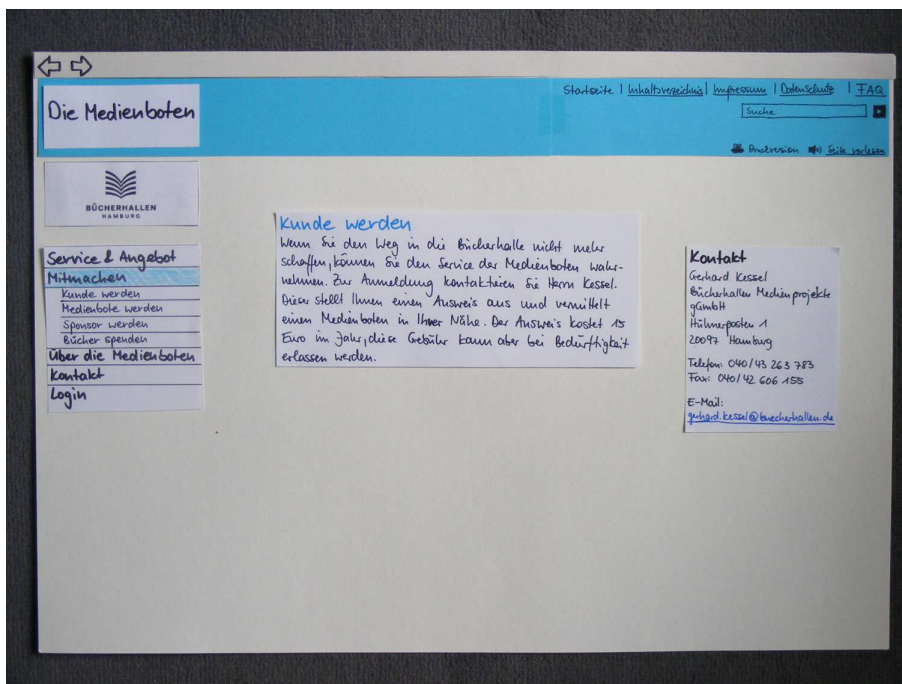 Startseite | Inhaltsverzeichnis | Impressum | Datenschutz | FAQ
Die Medienboten
Suche
Druckversion Seite vorlesen
BÜCHERHALLEN
HAMBURG
Service & Angebot
Mitmachen
Kunde werden
Medienbote werden
Sponsor werden
Bücher spenden
Über die Medienboten
Kontakt
Login
Kunde werden
Wenn Sie den Weg in die Bücherhalle nicht mehr
schaffen, können Sie den Service der Medienboten wahr-
nehmen. Zur Anmeldung kontaktieren Sie Herrn Kessel.
Dieser stellt Ihnen einen Ausweis aus und vermittelt
einen Medienboten in Ihrer Nähe. Der Ausweis kostet 15
Euro im Jahr, diese Gebühr kann aber bei Bedürftigkeit
erlassen werden.
Kontakt
Gerhard Kessel
Bücherhallen Medienprojekte
gGmbH
Hühnerposten 1
20097 Hamburg
Telefon: 040/43 263 783
Fax: 040/42 606 155
E-Mail:
gerhard.kessel@buecherhallen.de